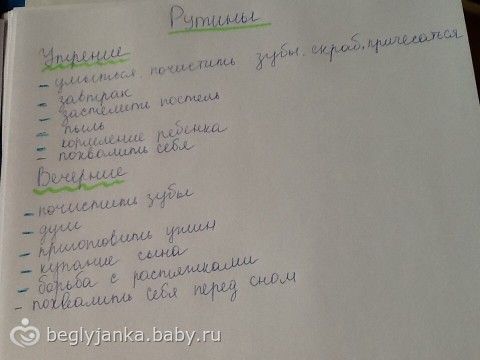 Рутины
Утренние
- умыться, почистить зубы, скраб, причесаться
- завтрак
- застелить постель
- пыль
- кормление ребенка
- похвалить себя
Вечерние
- почистить зубы
- душ
- приготовить ужин
- купание сына
- борьба с растяжками
- похвалить себя перед сном
beglyjanka.baby.ru